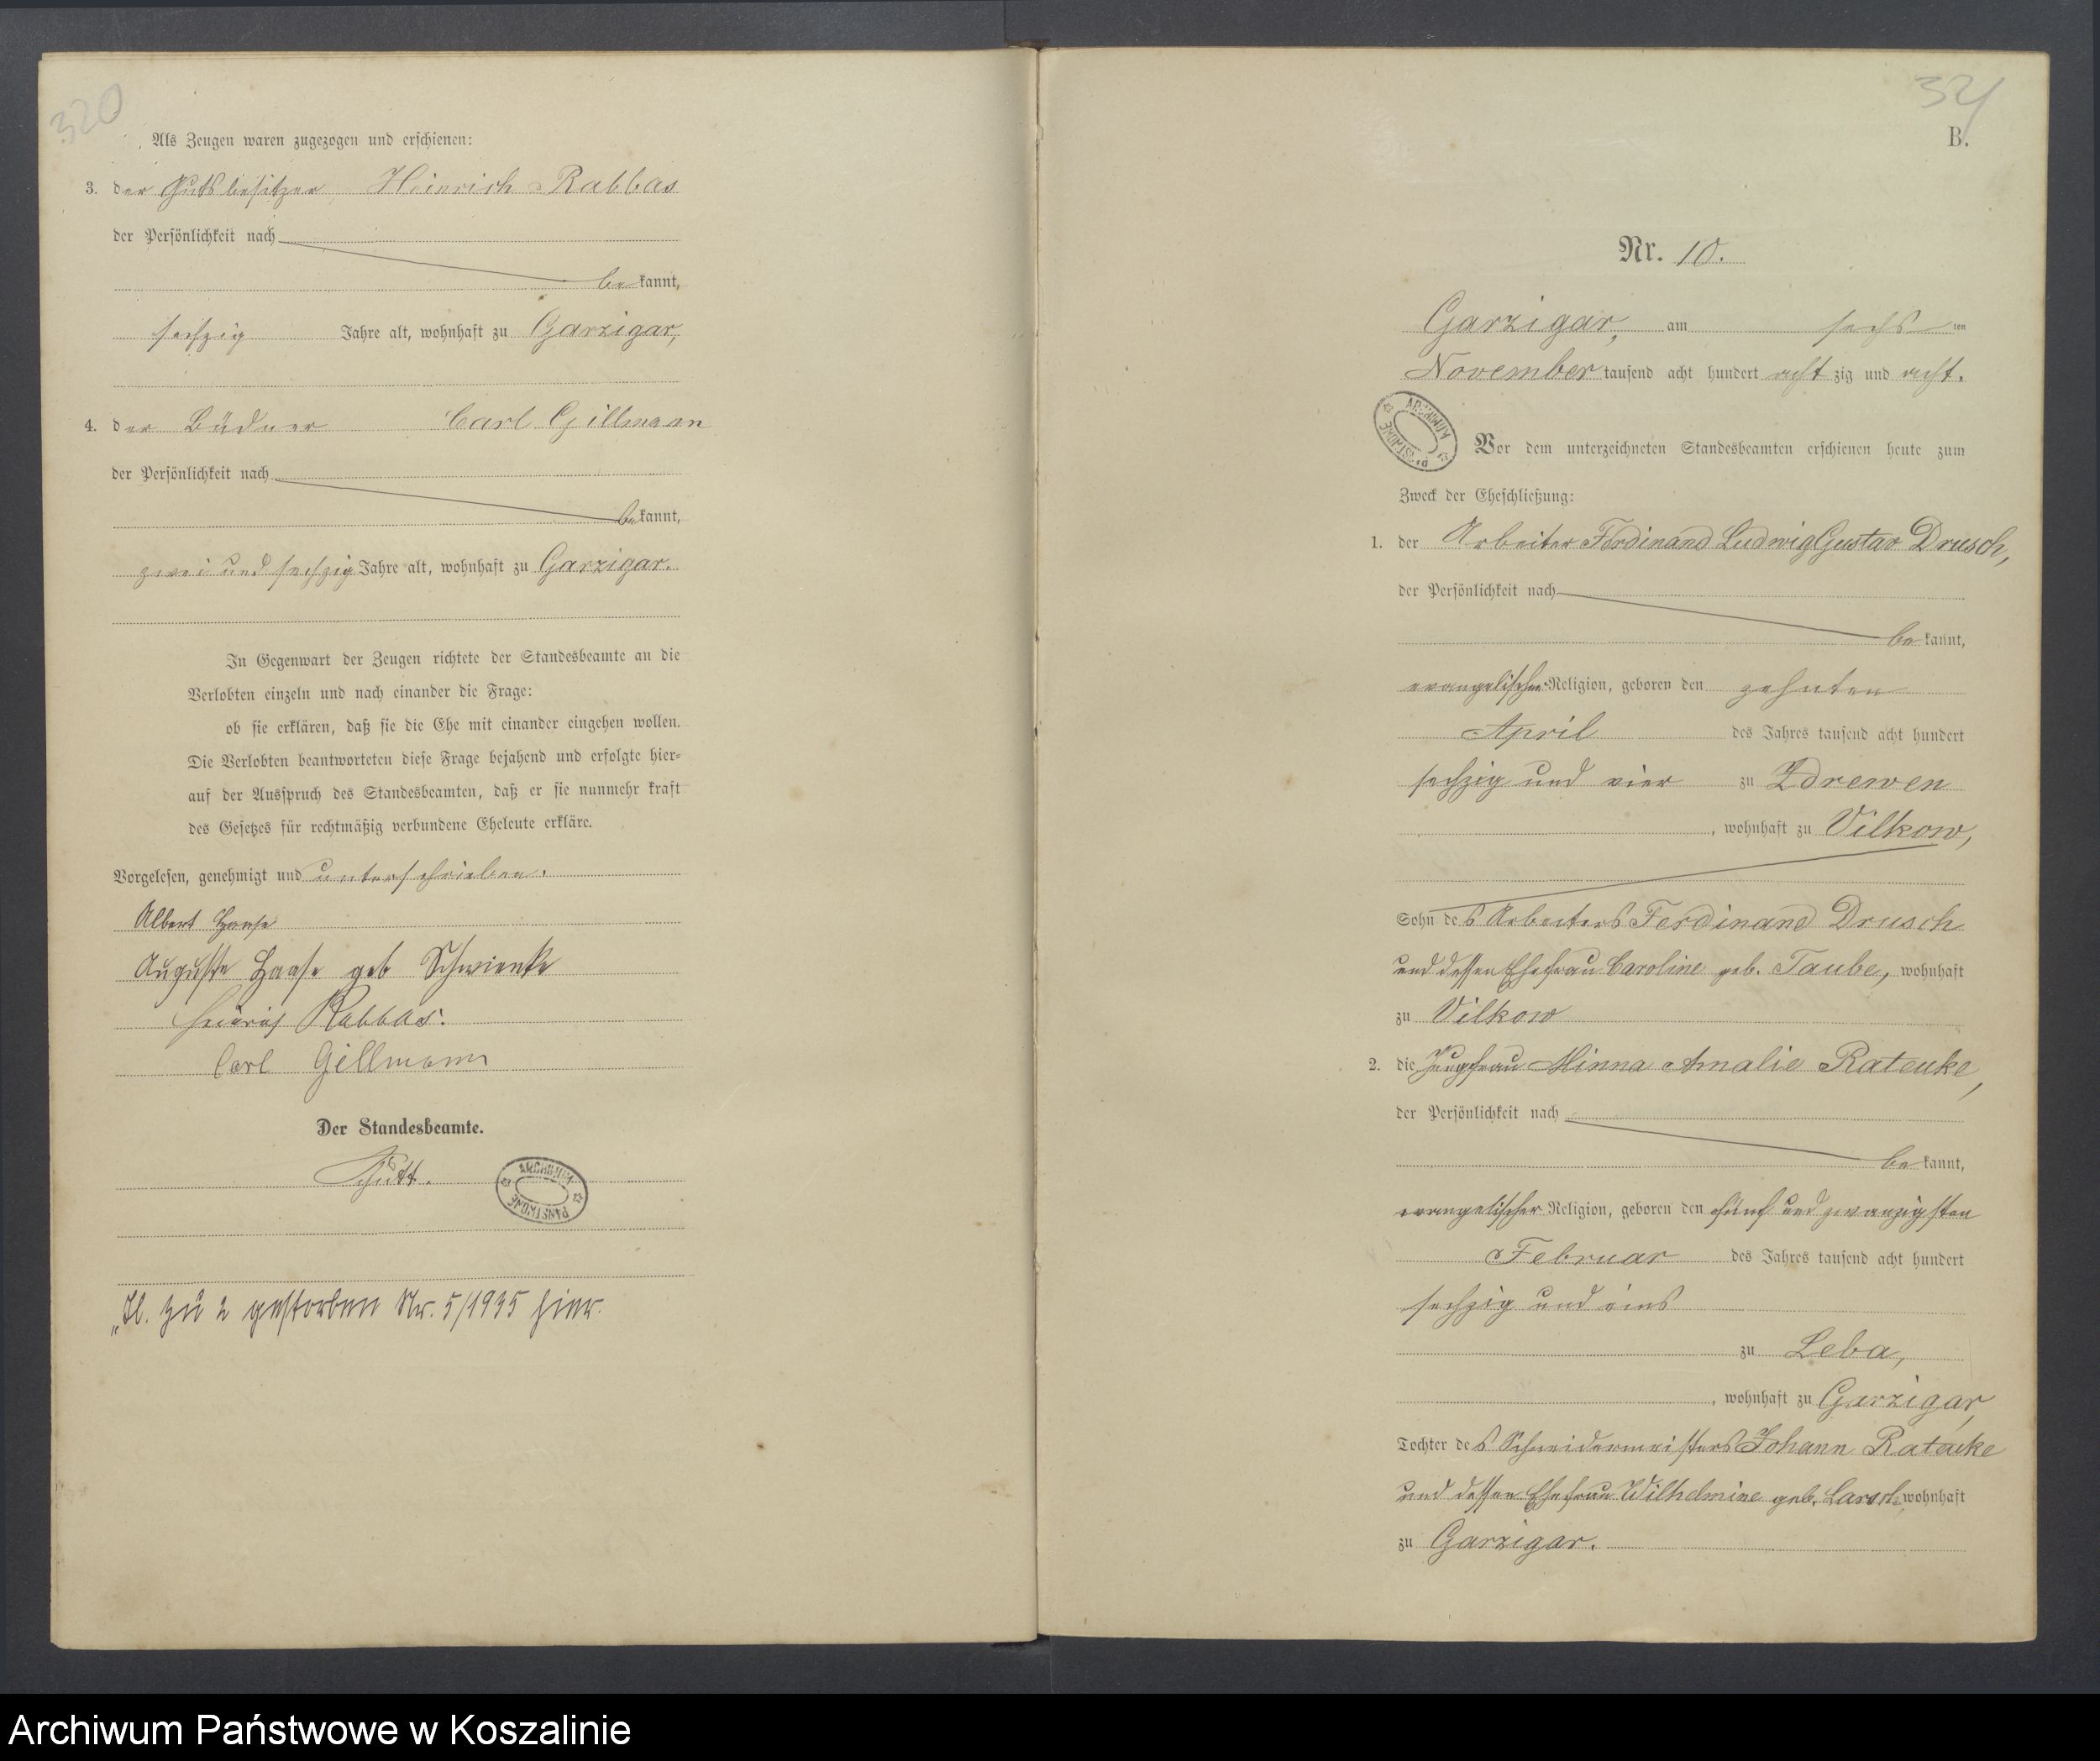 320
Als Zeugen waren zugezogen und erschienen:
3. der Gutsbesitzer Heinrich Rabbas
der Persönlichkeit nach
bekannt,
sechzig Jahre alt, wohnhaft zu Garzigar,
4. der Büdner Carl Gillmann
der Persönlichkeit nach
bekannt,
zwei und sechzig Jahre alt, wohnhaft zu Garzigar.
In Gegenwart der Zeugen richtete der Standesbeamte an die
Verlobten einzeln und nach einander die Frage:
ob sie erklären, daß sie die Ehe mit einander eingehen wollen.
Die Verlobten beantworteten diese Frage bejahend und erfolgte hier-
auf der Ausspruch des Standesbeamten, daß er sie nunmehr kraft
des Gesetzes für rechtmäßig verbundene Eheleute erkläre.
Vorgelesen, genehmigt und unterschrieben.
Albert Haase
Auguste Haase geb Schwienke
Heinrich Rabbas.
Carl Gillmann
Der Standesbeamte.
ARCHIWUM PAŃSTWOWE
zu 2 gestorben Nr. 5/1935 hier.
B.
Nr. 10.
Garzigar, am sechsten
November tausend acht hundert achtzig und acht.
ARCHIWUM PAŃSTWOWE
Vor dem unterzeichneten Standesbeamten erschienen heute zum
Zweck der Eheschließung:
1. der Arbeiter Ferdinand Ludwig Gustav Drusch,
der Persönlichkeit nach
bekannt,
evangelischer Religion, geboren den zehnten
April des Jahres tausend acht hundert
sechzig und vier zu Zdrewen
, wohnhaft zu Vilkow,
Sohn des Arbeiters Ferdinand Drusch
und dessen Ehefrau Caroline geb. Taube, wohnhaft
zu Vilkow
2. die Jungfrau Minna Amalie Rateuke,
der Persönlichkeit nach
bekannt,
evangelischer Religion, geboren den fünf und zwanzigsten
Februar des Jahres tausend acht hundert
sechzig und eins
zu Leba,
, wohnhaft zu Garzigar,
Tochter des Schneidermeisters Johann Rateuke
und dessen Ehefrau Wilhelmine geb. Larsch, wohnhaft
zu Garzigar.
Archiwum Państwowe w Koszalinie